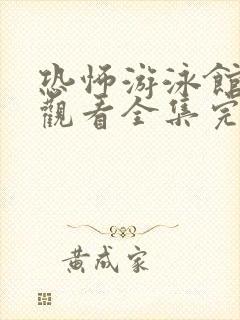 恐怖游泳館
觀看全集完
黃成家